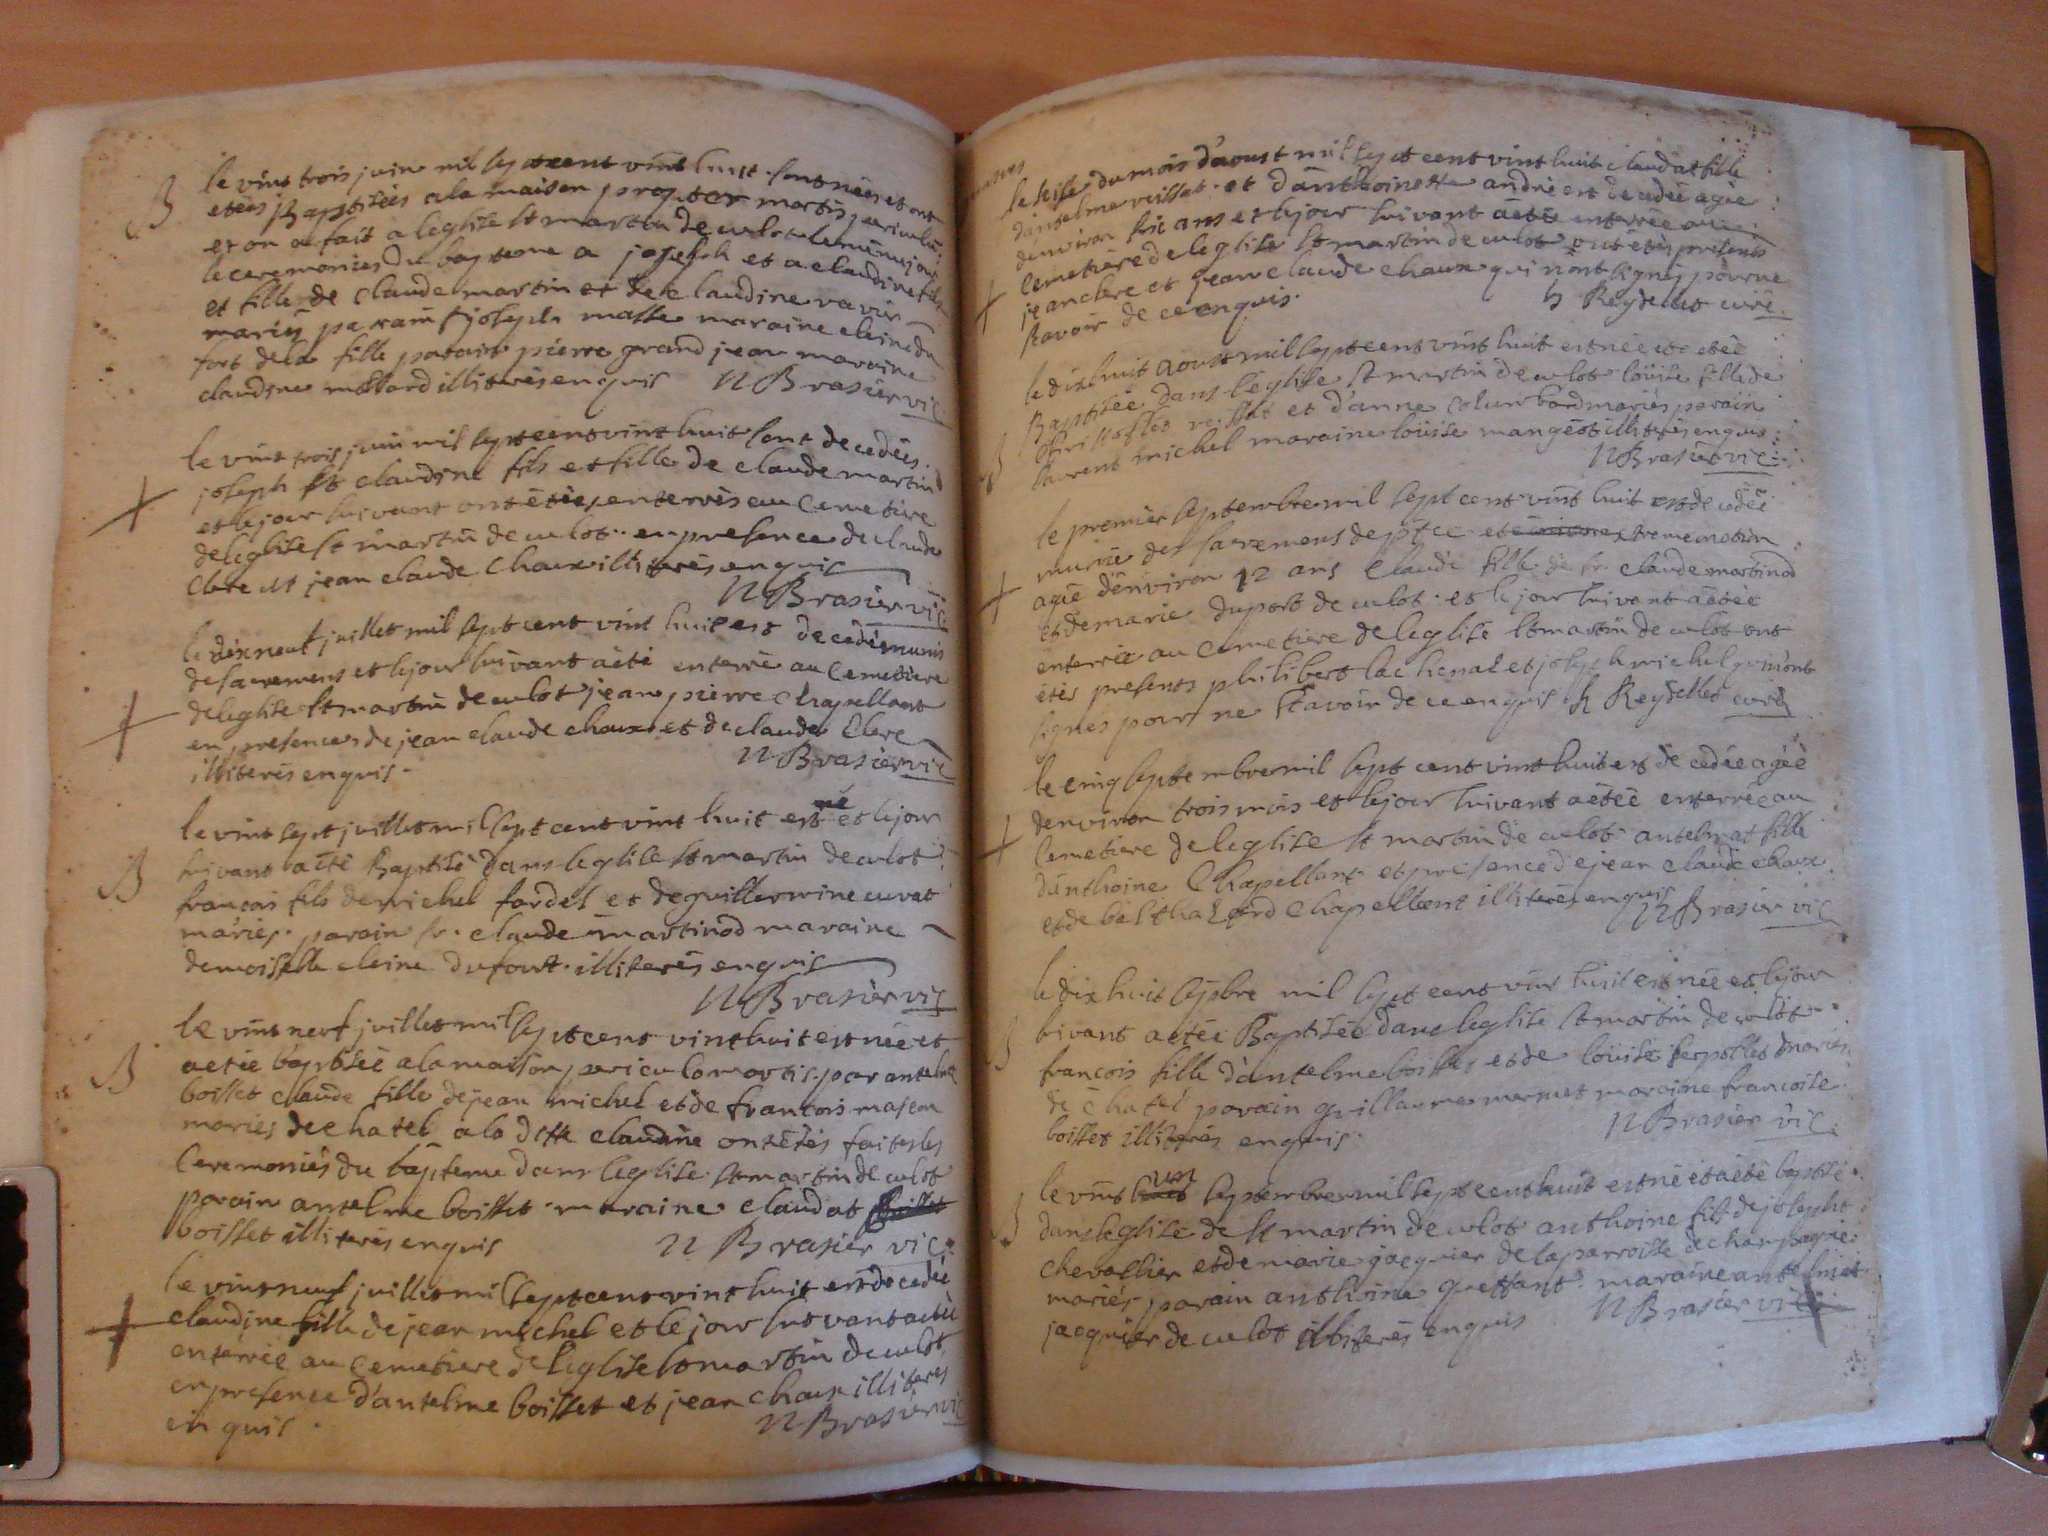 B
le vint trois juin mil sept cent vint huit sont nées et ont
etées Baptisées a la maison propter mortis periculum
et on a fait a leglise st martin de culot le même jour
le ceremonies du bapteme a joseph et a claudine fils
et fille de claude martin et de claudine ravir
mariés parain joseph masse maraine cleine du
fort de la fille parain pierre grand jean maraine
claudine molard illiterés enquis N Brasier vic
le vint trois juin mil sept cent vint huit sont decedées
joseph et claudine fils et fille de claude martin
et le jour suivant ont étées enterrés au Cemetiere
de leglise st martin de culot en presence de claude
Clere et jean claude Chaux illiterés enquis
N Brasier vic
le dix neuf juillet mil sept cent vint huit est decedé munis
de sacremens et le jour suivant a été enterré au Cemetiere
de leglise st martin de culot jean pierre Chapellant
en presence de jean claude chaux et de claude Clere
illiterés enquis. N Brasier vic
B
le vint sept juillet mil sept cent vint huit est né et le jour
suivant a été Baptisé dans leglise st martin de culot
francois fils de michel fardel et de guillermine curat
mariés. parain sr. claude martinod maraine
demoiselle cleine dufour. illiterés enquis
N Brasier vic
B
le vint neuf juillet mil sept cent vint huit est née et
a etée baptisée a la maison periculo mortis par antelme
boisset claude fille de jean michel et de francois masson
mariés de chatel a la ditte claudine ont étés faites les
Ceremonies du bapteme dans leglise st martin de culot
parain antelme boisset maraine claudat
boisset illiterés enquis N Brasier vic.
le vint neuf juillet mil sept cent vint huit est decedée
claudine fille de jean michel et le jour suivant a été
enterrée au Cemetiere de leglise st martin de culot
en presence d'antelme boisset et jean chaux illiteres
enquis. N Brasier vic
le seise du mois d'aoust mil sept cent vint huit claudat fille
d'antelme veissat et d'anthoinette andrié est decedée agée
denviron six ans et le jour suivant a été enterrée au
Cemetiere de leglise st martin de culot ont étés presents
jean clere et jean claude chaux qui n'ont signés pour ne
scavoir de ce enquis. h Reydellet curé.
B
le dix huit aoust mil sept cent vint huit est née et a étée
Baptisée dans l'église st martin de culot loüise fille de
veissat et d'anne Colombard mariés parain
laurent michel maraine loüise mangeot illiterés enquis
N Brasier vic.
le premier septembre mil sept cent vint huit est decedée
munie des sacremens de et extreme onction
agée d'environ 12 ans Claude fille de sr. claude martinod
et de marie duport de culot. et le jour suivant a étée
enterrée au cemetiere de leglise st martin de culot ont
étés presents philibert lachenal et joseph michel qui n'ont
signes pour ne scavoir de ce enquis h Reydellet curé
le cinq septembre mil sept cent vint huit est decedée agée
denviron trois mois et le jour suivant a étée enterrée au
Cemetiere de leglise st martin de culot. antelmat fille
d'anthoine Chapellant et presence de jean claude chaux
et de balthazard Chapellant illiterés enquis
N Brasier vic
B
le dix huit sepbre mil sept cent vint huit est née et le jour
suivant a étée Baptisée dans leglise st martin de culot
francois fille d'antelme boisset et de loüise serpollet mariés
de chatel parain guillaume mermet maraine francoise
boisset illiterés enquis. N Brasier vic.
B
le vint un septembre mil sept cent huit est né et a été baptisé
dans leglise de st martin de culot anthoine fils de joseph
chevallier et de marie jacquier de la parroisse de champagne
mariés parain anthoine maraine
jacquier de culot illiterés enquis N Brasier vic